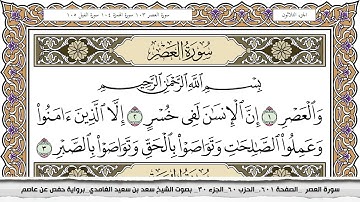 الجزء الثلاثون
سورة العصر ١٠٣ سورة الهمزة ١٠٤ سورة الفيل ١٠٥
سُورَةُ العَصْرِ
بِسْمِ اللَّهِ الرَّحْمَٰنِ الرَّحِيمِ
وَالْعَصْرِ ١ إِنَّ الْإِنسَٰنَ لَفِى خُسْرٍ ٢ إِلَّا الَّذِينَ ءَامَنُوا۟
وَعَمِلُوا۟ الصَّٰلِحَٰتِ وَتَوَاصَوْا۟ بِالْحَقِّ وَتَوَاصَوْا۟ بِالصَّبْرِ ٣
سورة العصر _ الصفحة ٦٠١ _ الحزب ٦٠ _ الجزء ٣٠ _ بصوت الشيخ سعد بن سعيد الغامدي _ برواية حفص عن عاصم